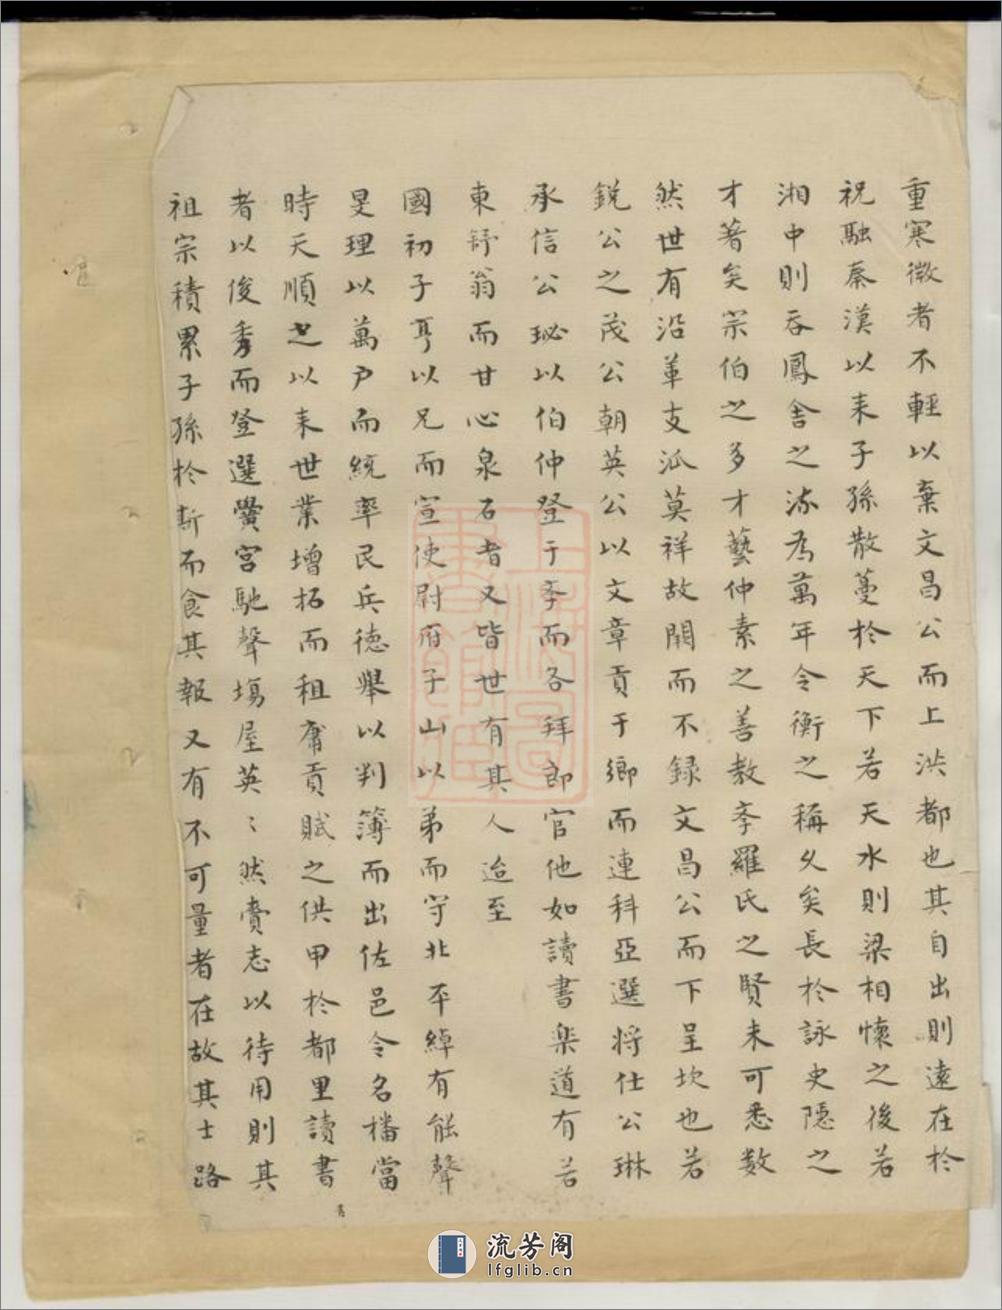 重寒微者不輕以棄文昌公而上洪都也其自出則遠在於
祝融秦漢以来子孫散蔓於天下若天水則梁相懷之後若
湘中則吞鳳舍之流為萬年令衡之稱乆矣長於詠史隱之
才著矣宗伯之多才藝仲素之善教李羅氏之賢未可悉数
然世有沿革支派莫祥故闕而不録文昌公而下呈坎也若
鋭公之茂公朝英公以文章貢于鄉而連科亞選将仕公琳
承信公珌以伯仲登于李而各拜郎官他如讀書楽道有若
東野翁而甘心泉石者又皆世有其人迨至
國初子亨以兄而宣使尉府子山以弟而守北平綽有能聲
旻理以萬户而統率民兵德舉以判簿而出佐邑令名檔當
時天順之以来世業增拓而租庸貢賦之供甲於都里讀書
者以俊秀而登選黌宮馳聲塲屋英〻然賫志以待用則其
祖宗積累子孫於斯而食其報又有不可量者在故其士路
上海圖書館藏
流芳阁
lfglib.cn